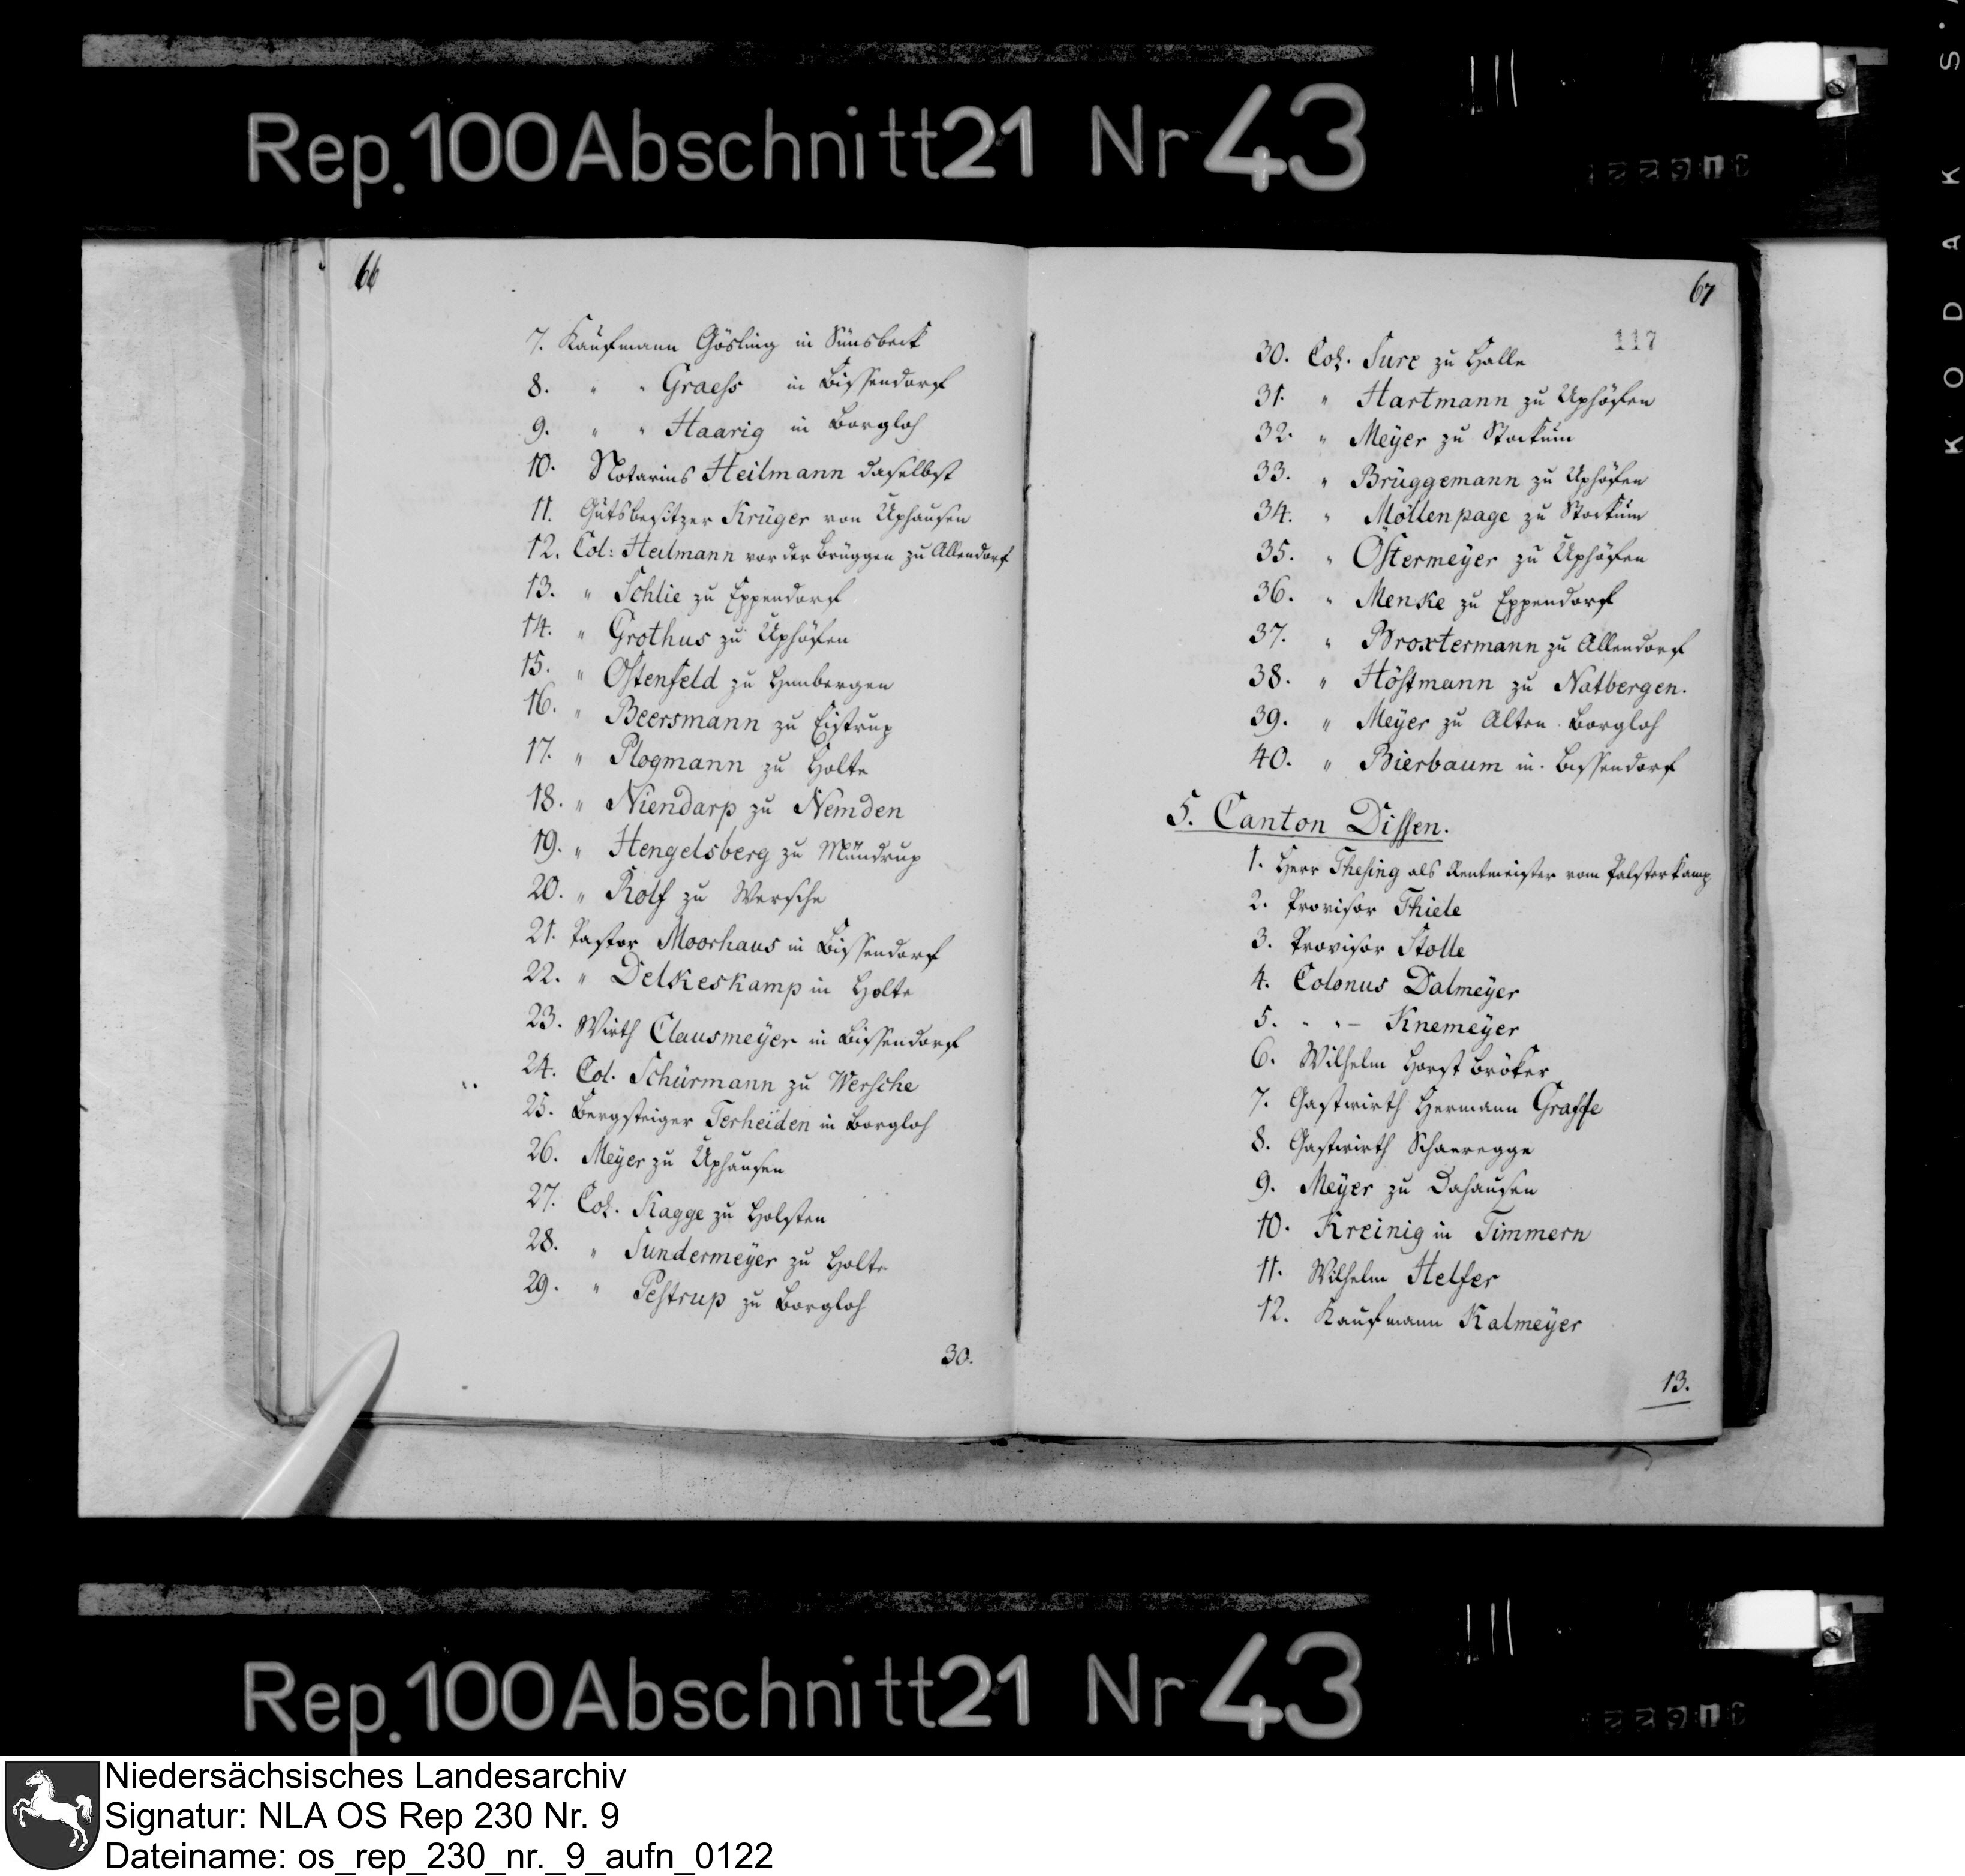 Rep.100 Abschnitt 21 Nr 43
66
7. Kaufmann Gösling in Sünsbeck
8. " " Graess in Bissendorf
9. " " Haarig in Borgloh
10. Notarius Heilmann daselbst
11. Gutsbesitzer Krüger von Uphausen
12. Col: Heilmann vor der Brüggen zu Allendorf
13. " Schlie zu Eppendorf
14. " Grothus zu Uphöfen
15. " Ostenfeld zu Himbergen
16. " Beersmann zu Eistrup
17. " Plogmann zu Holte
18. " Niendarp zu Nemden
19. " Hengelsberg zu Mündrup
20. " Rolf zu Wersche
21. Pastor Moorhaus in Bissendorf
22. " Delkeskamp in Holte
23. Wirth Clausmeÿer in Bissendorf
24. Col. Schürmann zu Wersche
25. Bergsteiger Terheiden in Borgloh
26. Meÿer zu Uphausen
27. Col. Kagge zu Holsten
28. " Sundermeÿer zu Holte
29. " Pestrup zu Borgloh
30.
67
117
30. Col. Sure zu Halle
31. " Hartmann zu Uphöfen
32. " Meÿer zu Stockum
33. " Brüggemann zu Uphöfen
34. " Möllenpage zu Stockum
35. " Ostermeÿer zu Uphöfen
36. " Menke zu Eppendorf
37. " Broxtermann zu Allendorf
38. " Höstmann zu Natbergen.
39. " Meÿer zu Alten Borgloh
40. " Bierbaum in Bissendorf
5. Canton Dissen.
1. Herr Thesing als Rentmeister vom Palsterkamp
2. Provisor Thiele
3. Provisor Stolle
4. Colonus Dalmeÿer
5. " " – Knemeÿer
6. Wilhelm Horst Bröker
7. Gastwirth Hermann Graffe
8. Gastwirth Schaeregge
9. Meÿer zu Dahausen
10. Kreinig in Timmern
11. Wilhelm Helfer
12. Kaufmann Kalmeÿer
13.
KODAK S
Rep.100 Abschnitt 21 Nr 43
Niedersächsisches Landesarchiv
Signatur: NLA OS Rep 230 Nr. 9
Dateiname: os_rep_230_nr._9_aufn_0122